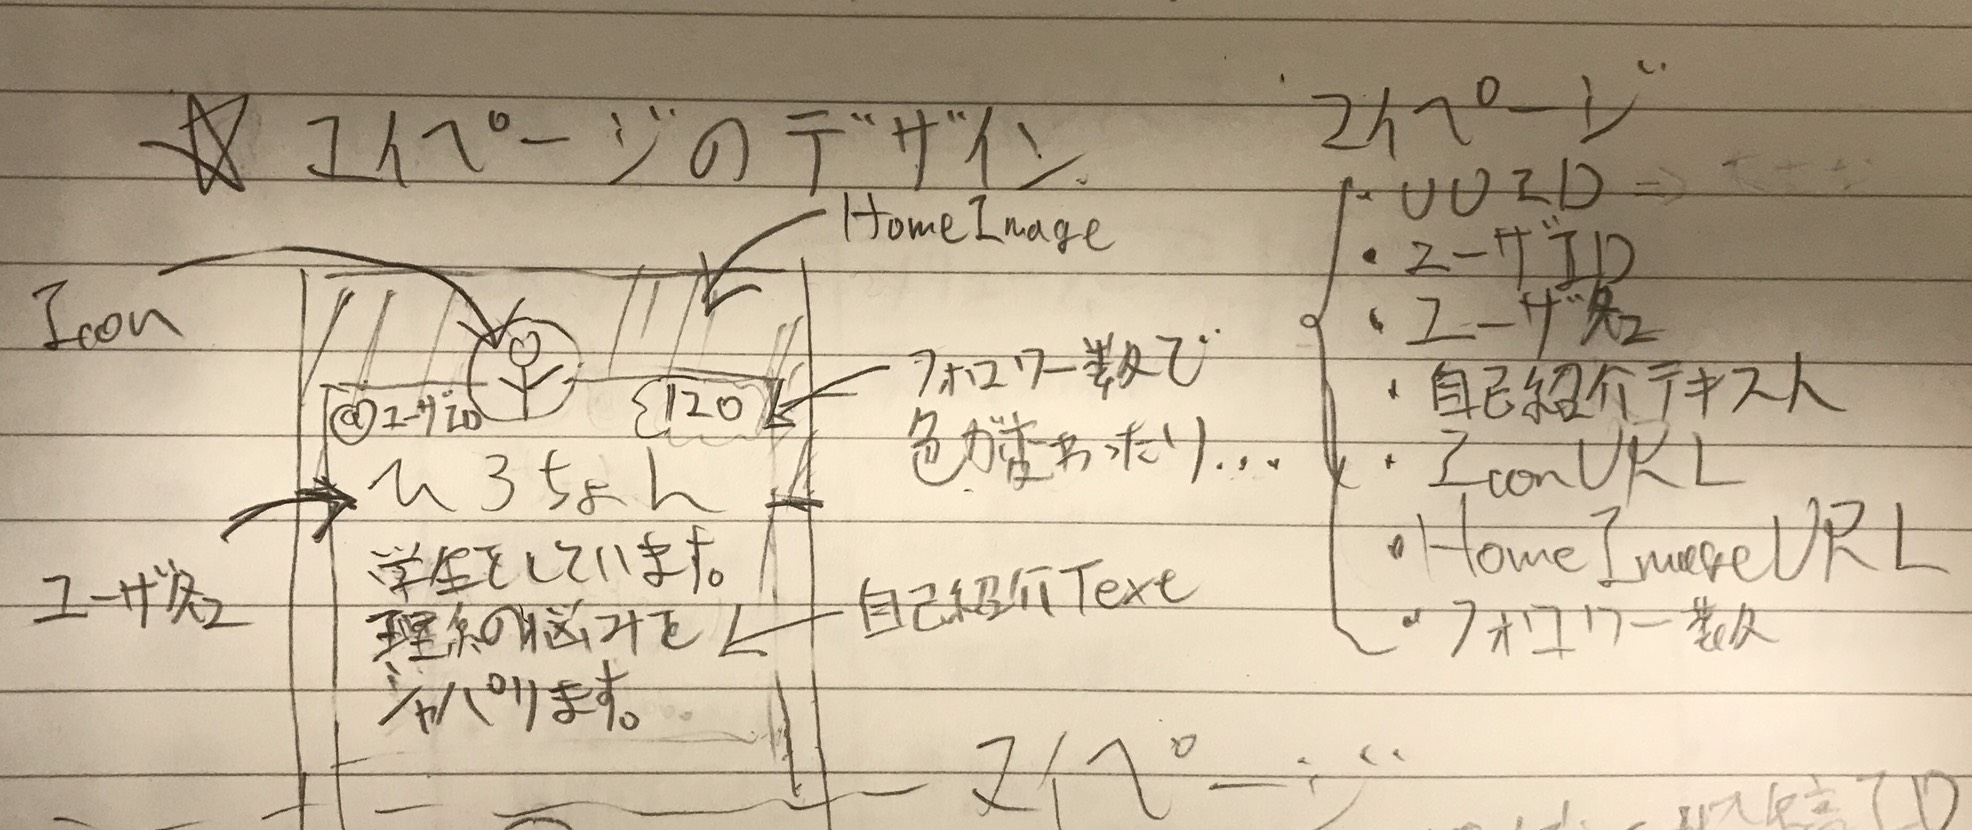 ☆ マイページのデザイン
HomeImage
Icon
@ユーザID
120
フォロワー数で
色が変わったり...
ひろちょん
ユーザ名
学生をしています。
理系の悩みを
シャパります。
自己紹介Text
マイページ
・UUID ⇒
・ユーザID
・ユーザ名
・自己紹介テキスト
・IconURL
・HomeImageURL
・フォロワー数
マイページ
ID